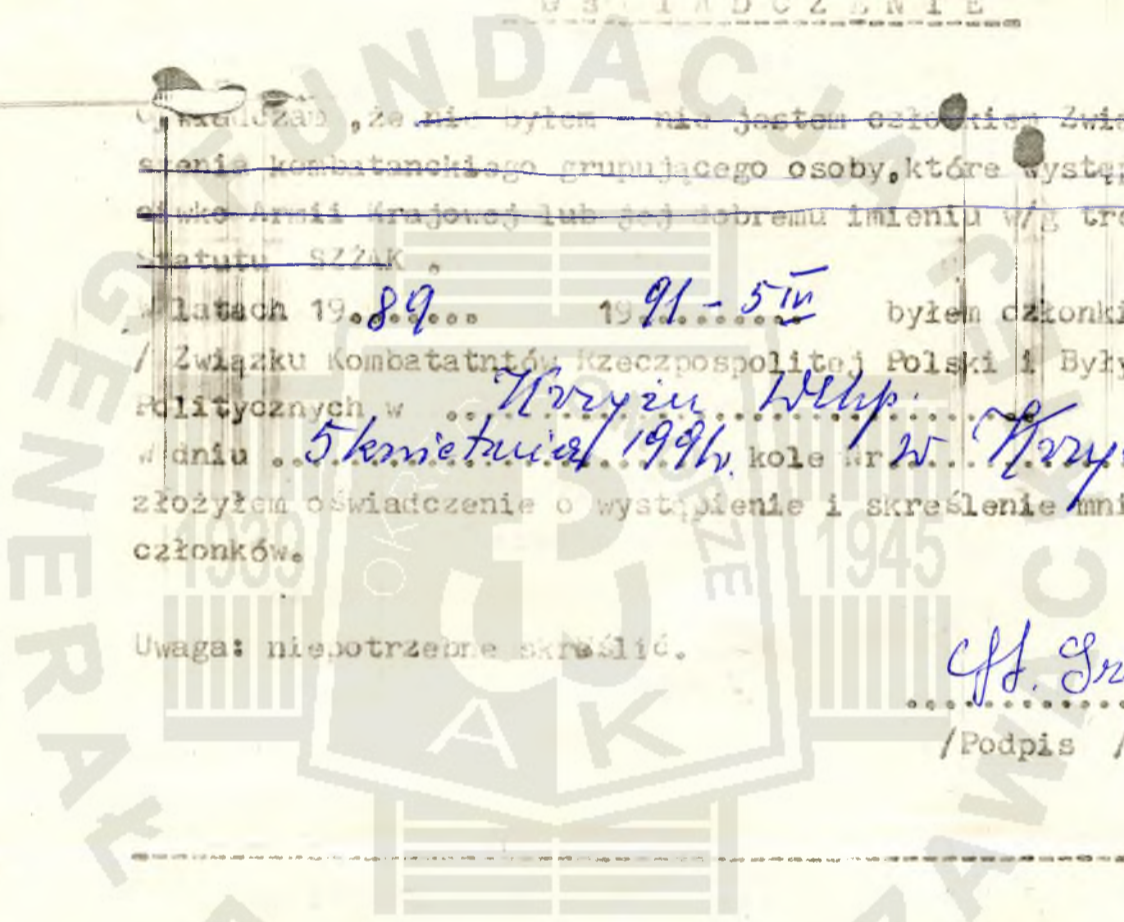 OŚWIADCZENIE
Oświadczam ,że nie byłem - nie jestem członkiem Zwią
szenia kombatanckiego grupującego osoby,które występ
ciwko Armii Krajowej lub jej dobremu imieniu w/g tre
Statutu SZŻAK .
W latach 19 89 19 91 - 5 IV byłem członki
/ Związku Kombatatntów Rzeczpospolitej Polski i Były
Politycznych w Krzyżu Wlkp.
W dniu 5 kwietnia 1991r. kole nr w Krzy
złożyłem oświadczenie o wystąpienie i skreślenie mni
członków.
Uwaga: niepotrzebne skreślić.
/Podpis /
FUNDACJA
GENERAŁ
1939
1945
AK